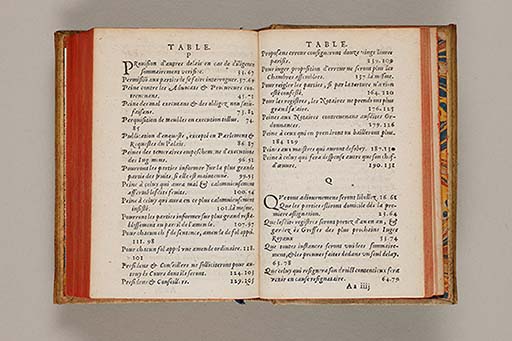 TABLE.
P
PRouision d'autres delaiz en cas de diligence
sommairement verifiee. 33.67
Permission aux parties de se faire interroguer. 37.69
Peine contre les Aduocats & Procureurs con
treuenans. 45.71
Peine des mal executans & des obligez non satis-
faisans. 73.85
Perquisition de meubles en execution nulle. 74.
85
Publication d'enqueste, excepté en Parlement &
Requestes du Palais. 86.87
Peines des temeraires empeschemens d'execution
des Iugemens. 96.51
Pourront les parties informer sur la plus grande
partie des fruits, si elle est maintenue 99.55
Peine à celuy qui aura mal & calomnieusement
affermé lesdits fruits. 100.56
Peine à celuy qui aura en ce plus calomnieusement
insisté. 101. là mesme.
Pourront les parties informer sur plus grand resta-
blissement au pardessus de l'amende. 107.97
Pour chacun chef de sentence, amende de fol appel.
111. 98
Pour chacun fol appel vne amende ordinaire. 111.
101
Presidens & Conseillers ne solliciteront pour au-
truy és Cours dont ils seront. 124.103
Presidens & Conseillers. 129.105
TABLE.
Proposans erreur consigneront douze vingts liures
parisis. 137.109
Pour iuger proposition d'erreur ne seront plus les
Chambres assemblees. 137. là mesme.
Pour regler les parties, si par la teneur n'a rien
esté confessé. 164.110
Pour les registres, les Notaires ne prendront plus
grand salaire. 176.125
Peines aux Notaires contreuenans ausdites Or-
donnances. 179.126
Peine à ceux qui en prendront ou bailleront plus.
184.129
Peine aux maistres qui auront desobey. 187.130
Peine à celuy qui fera despense autre que son chef-
d'œuvre. 190.131
Q
QVe tous adiournemens seront libellez. 16.61
Que les parties esliront domicile dés la pre-
miere assignation. 23.64
Que lesdits registres seront portez d'an en an, &
gardez és Greffes des plus prochains Iuges
Royaux 53.74
Que toutes instances seront vuidees sommaire-
ment, & les preuues faites dedans vn seul delay.
63.78
Que celuy qui resignera son droict contentieux sera
retenu en cause resignataire. 64.79
Aa iiij